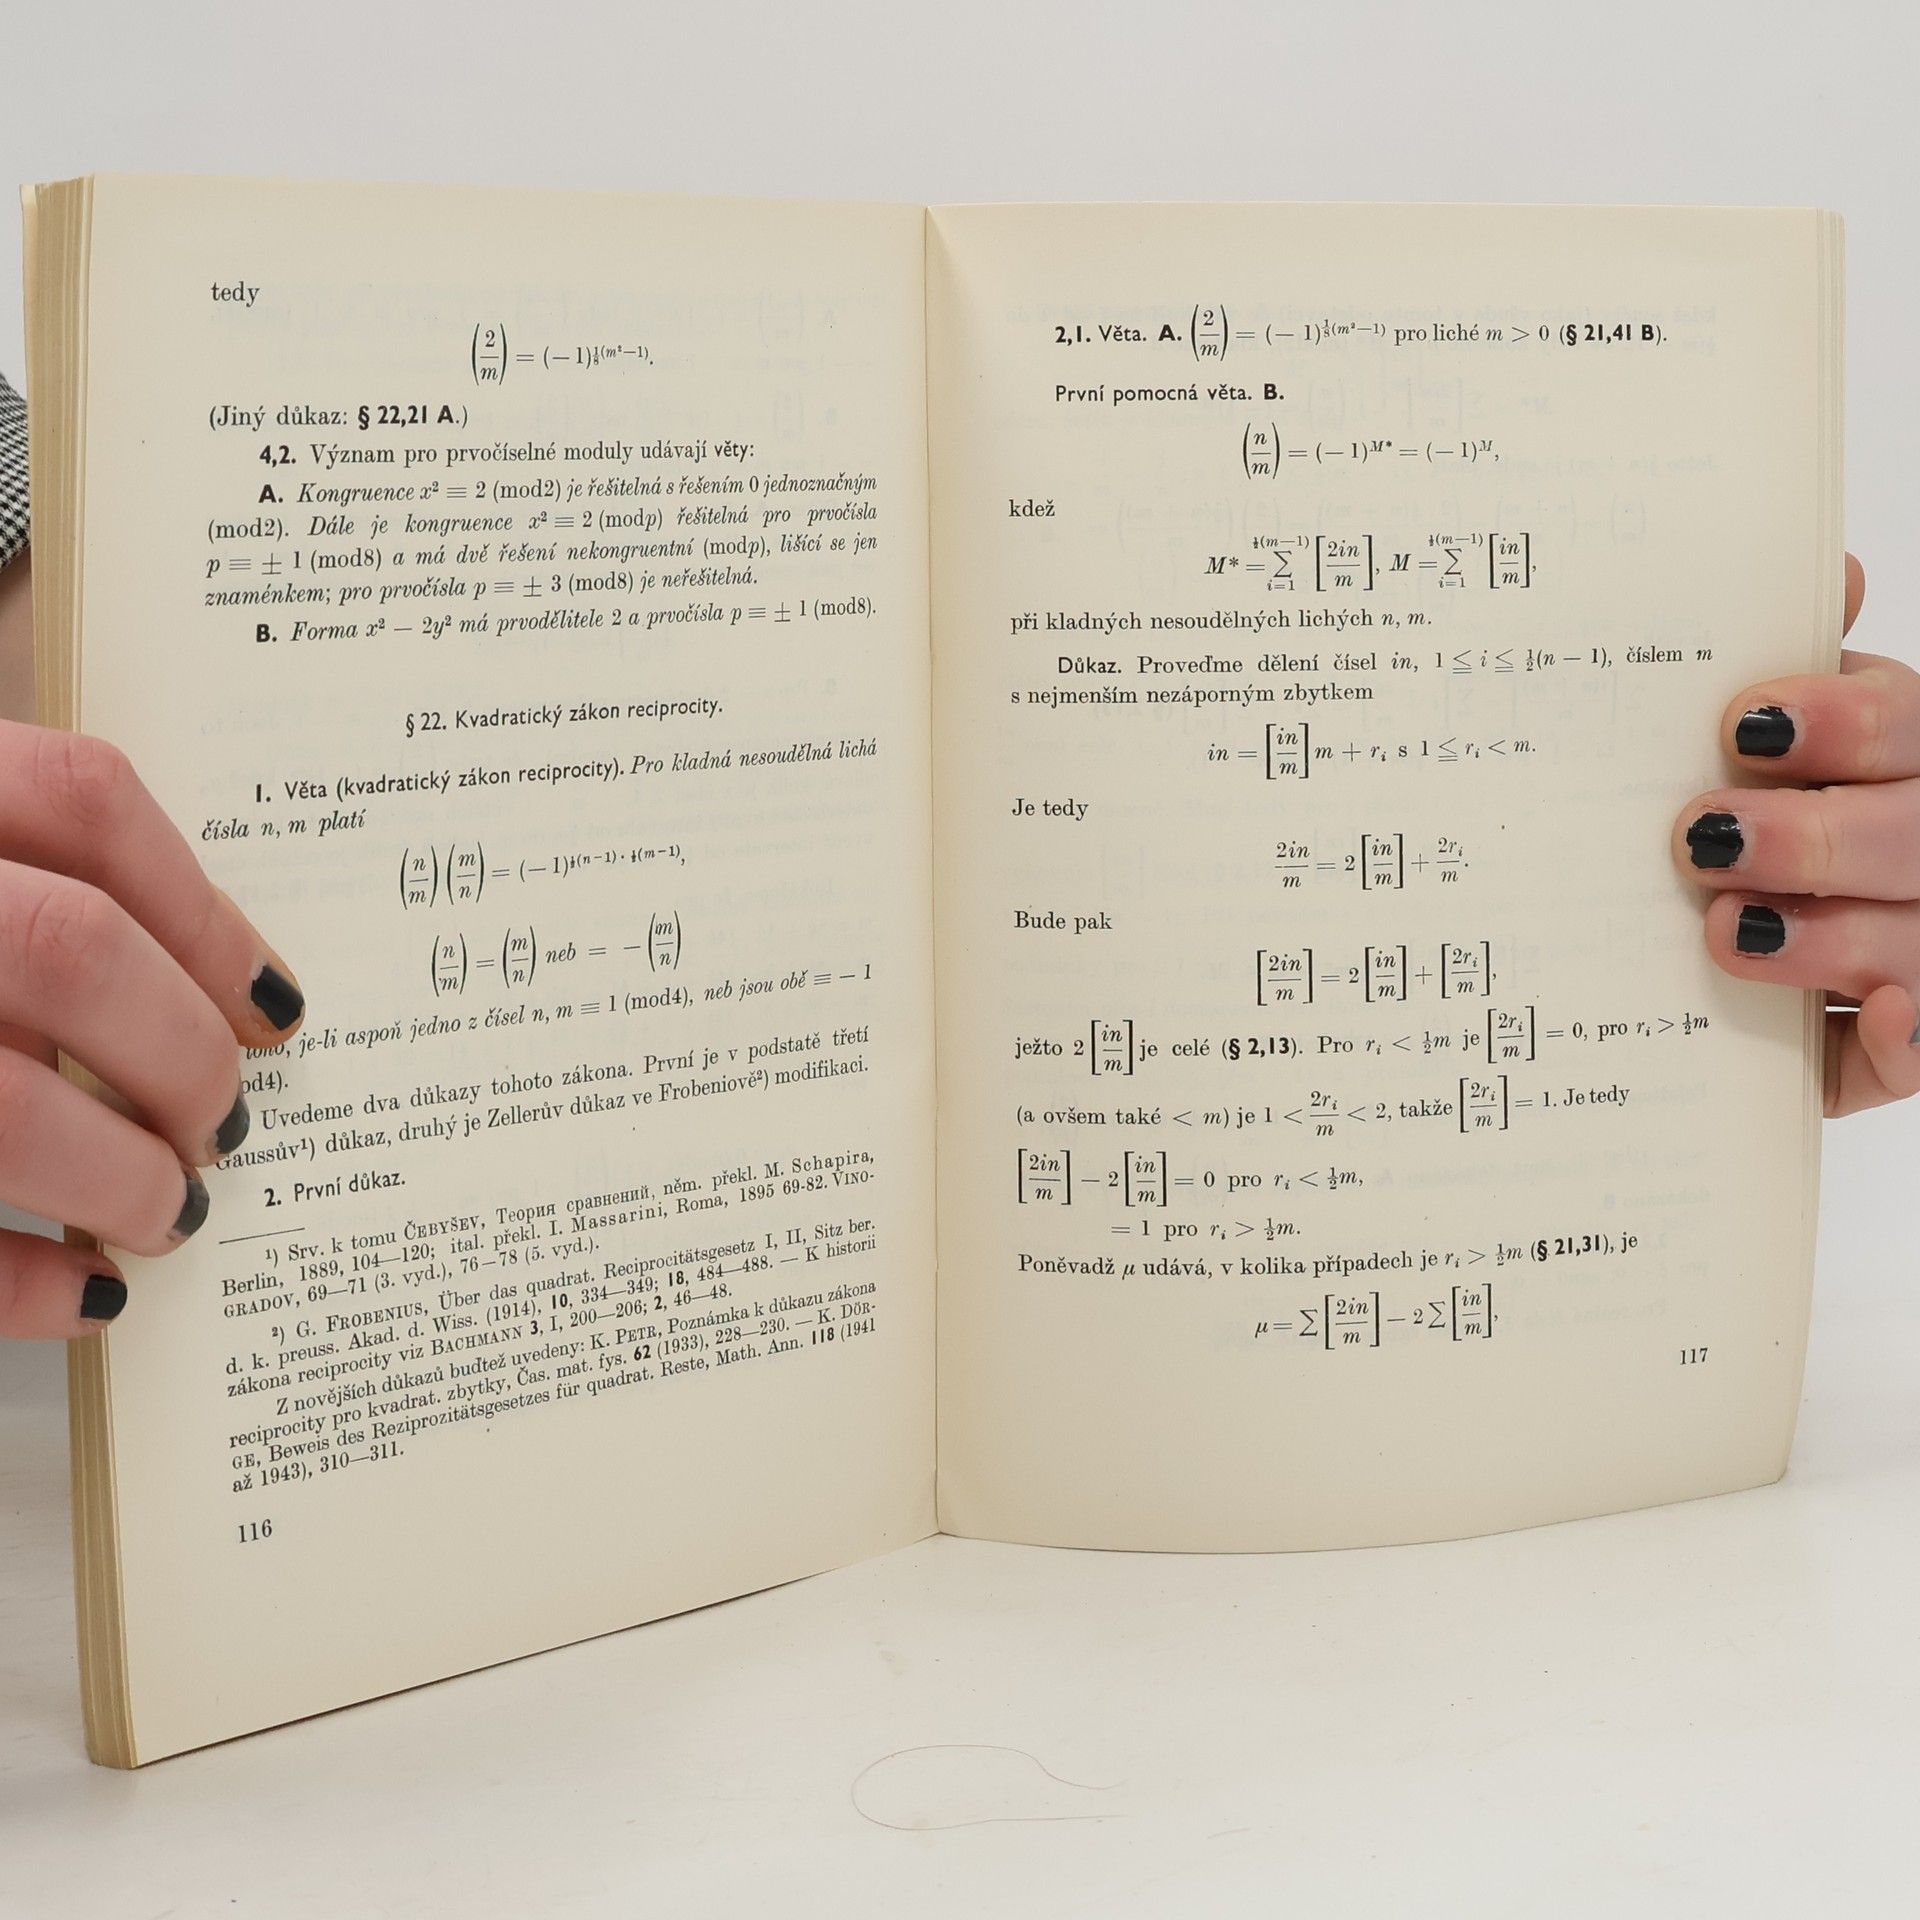 tedy
(2/m) = (— 1)^{⅛(m²—1)}.
(Jiný důkaz: § 22,21 A.)
4,2. Význam pro prvočíselné moduly udávají věty:
A. Kongruence x² ≡ 2 (mod2) je řešitelná s řešením 0 jednoznačným
(mod2). Dále je kongruence x² ≡ 2 (modp) řešitelná pro prvočísla
p ≡ ± 1 (mod8) a má dvě řešení nekongruentní (modp), lišící se jen
znaménkem; pro prvočísla p ≡ ± 3 (mod8) je neřešitelná.
B. Forma x² — 2y² má prvodělitele 2 a prvočísla p ≡ ± 1 (mod8).
§ 22. Kvadratický zákon reciprocity.
1. Věta (kvadratický zákon reciprocity). Pro kladná nesoudělná lichá
čísla n, m platí
(n/m) (m/n) = (— 1)^{½(n—1) · ½(m—1)},
(n/m) = (m/n) neb = — (m/n)
je-li aspoň jedno z čísel n, m ≡ 1 (mod4), neb jsou obě ≡ — 1
od4).
Uvedeme dva důkazy tohoto zákona. První je v podstatě třetí
Gaussův¹) důkaz, druhý je Zellerův důkaz ve Frobeniově²) modifikaci.
2. První důkaz.
¹) Srv. k tomu ČEBYŠEV, Теория сравнений, něm. překl. M. Schapira,
Berlin, 1889, 104—120; ital. překl. I. Massarini, Roma, 1895 69-82. VINO-
GRADOV, 69—71 (3. vyd.), 76—78 (5. vyd.).
²) G. FROBENIUS, Über das quadrat. Reciprocitätsgesetz I, II, Sitz ber.
d. k. preuss. Akad. d. Wiss. (1914), 10, 334—349; 18, 484—488. — K historii
zákona reciprocity viz BACHMANN 3, I, 200—206; 2, 46—48.
Z novějších důkazů buďtež uvedeny: K. PETR, Poznámka k důkazu zákona
reciprocity pro kvadrat. zbytky, Čas. mat. fys. 62 (1933), 228—230. — K. DÖR-
GE, Beweis des Reziprozitätsgesetzes für quadrat. Reste, Math. Ann. 118 (1941
až 1943), 310—311.
116
2,1. Věta. A. (2/m) = (— 1)^{⅛(m²—1)} pro liché m > 0 (§ 21,41 B).
První pomocná věta. B.
(n/m) = (— 1)^{M*} = (— 1)^{M},
kdež
M* = ∑_{i=1}^{½(m—1)} [2in/m], M = ∑_{i=1}^{½(m—1)} [in/m],
při kladných nesoudělných lichých n, m.
Důkaz. Proveďme dělení čísel in, 1 ≦ i ≦ ½(n — 1), číslem m
s nejmenším nezáporným zbytkem
in = [in/m] m + r_i s 1 ≦ r_i < m.
Je tedy
2in/m = 2 [in/m] + 2r_i/m.
Bude pak
[2in/m] = 2 [in/m] + [2r_i/m],
ježto 2 [in/m] je celé (§ 2,13). Pro r_i < ½m je [2r_i/m] = 0, pro r_i > ½m
(a ovšem také < m) je 1 < 2r_i/m < 2, takže [2r_i/m] = 1. Je tedy
[2in/m] — 2 [in/m] = 0 pro r_i < ½m,
= 1 pro r_i > ½m.
Poněvadž μ udává, v kolika případech je r_i > ½m (§ 21,31), je
μ = ∑ [2in/m] — 2 ∑ [in/m],
117